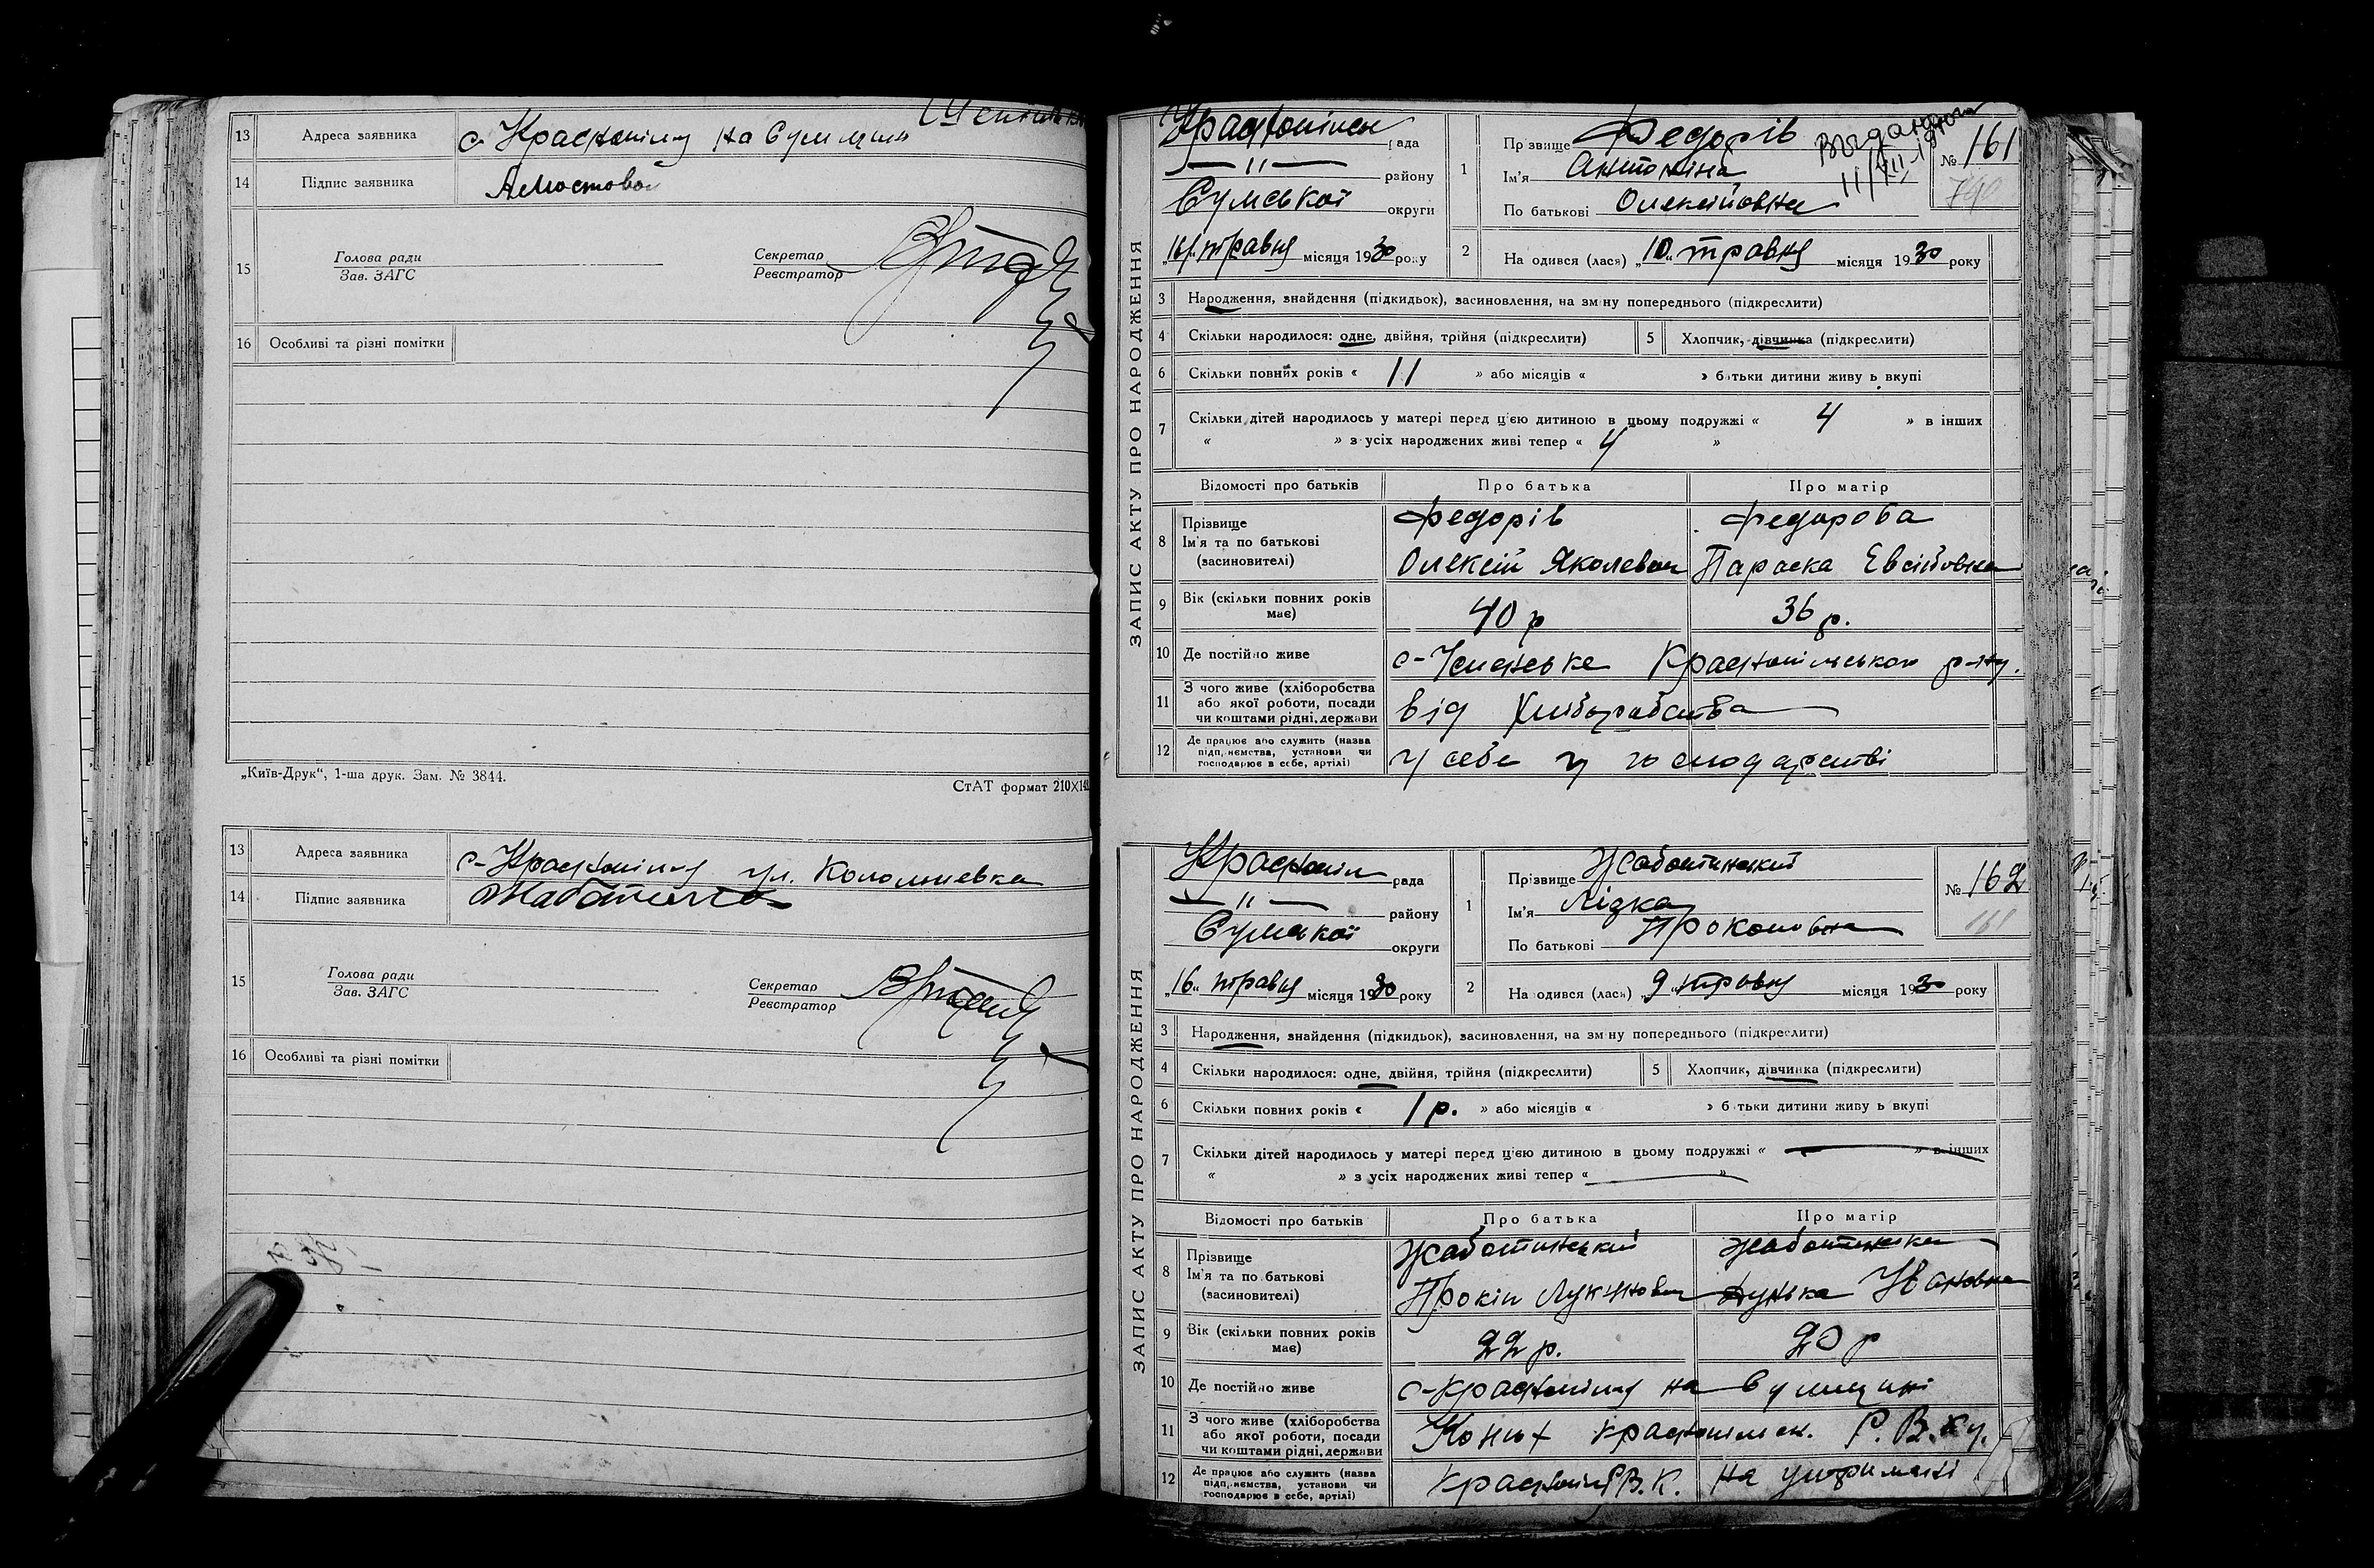 13 Адреса заявника с Краснопілля на Сумщині
14 Підпис заявника АМостовой
15 Голова ради
Зав. ЗАГС
Секретар
Реєстратор
16 Особливі та різні помітки
„Київ-Друк“, 1-ша друк. Зам. № 3844.
СтАТ формат 210X14
13 Адреса заявника с-Краснопілля ул. Коломиевка
14 Підпис заявника
15 Голова ради
Зав. ЗАГС
Секретар
Реєстратор
16 Особливі та різні помітки
ЗАПИС АКТУ ПРО НАРОДЖЕННЯ
рада
— " — району
Сумської округи
„16„ травня місяця 1930 року
1 Прізвище Федорів
Ім'я Антоніна
По батькові Олексіїовна
№ 161
2 На одився (лася) „10„ травня місяця 1930 року
3 Народження, знайдення (підкидьок), засиновлення, на зміну попереднього (підкреслити)
4 Скільки народилося: одне, двійня, трійня (підкреслити) 5 Хлопчик, дівчинка (підкреслити)
6 Скільки повних років « 11 » або місяців « » батьки дитини живуть вкупі
7 Скільки дітей народилось у матері перед цією дитиною в цьому подружжі « 4 » в інших
« » з усіх народжених живі тепер « 4 »
Відомості про батьків Про батька Про матір
8 Прізвище Федорів Федорова
Ім'я та по батькові Олексій Яколевич Параска Евсійовна
(засиновителі)
9 Вік (скільки повних років має) 40 р 36 р.
10 Де постійно живе
11 З чого живе (хліборобства
або якої роботи, посади від Хліборобства
чи коштами рідні, держави
12 Де працює або служить (назва
підприємства, установи чи у себе у господарстві
господарює в себе, артілі)
ЗАПИС АКТУ ПРО НАРОДЖЕННЯ
Краснопіл рада
— " — району
Сумської округи
„16„ травня місяця 1930 року
1 Прізвище Жаботинський
Ім'я Лідка
По батькові Прокоповна
№ 162
161
2 На одився (лася) 9 травня місяця 1930 року
3 Народження, знайдення (підкидьок), засиновлення, на зміну попереднього (підкреслити)
4 Скільки народилося: одне, двійня, трійня (підкреслити) 5 Хлопчик, дівчинка (підкреслити)
6 Скільки повних років « 1 р. » або місяців « » батьки дитини живуть вкупі
7 Скільки дітей народилось у матері перед цією дитиною в цьому подружжі « — » в інших
« » з усіх народжених живі тепер « — »
Відомості про батьків Про батька Про матір
8 Прізвище Жаботинський Жаботинська
Ім'я та по батькові Прокіп Лукянович Дунька Ивановна
(засиновителі)
9 Вік (скільки повних років має) 22 р. 20 р
10 Де постійно живе с-Краснопілля на Сумщині
11 З чого живе (хліборобства
або якої роботи, посади Конюх Краснопільск. Р.В.К у.
чи коштами рідні, держави
12 Де працює або служить (назва
підприємства, установи чи Краснопіл Р.В.К. На утриманні
господарює в себе, артілі)